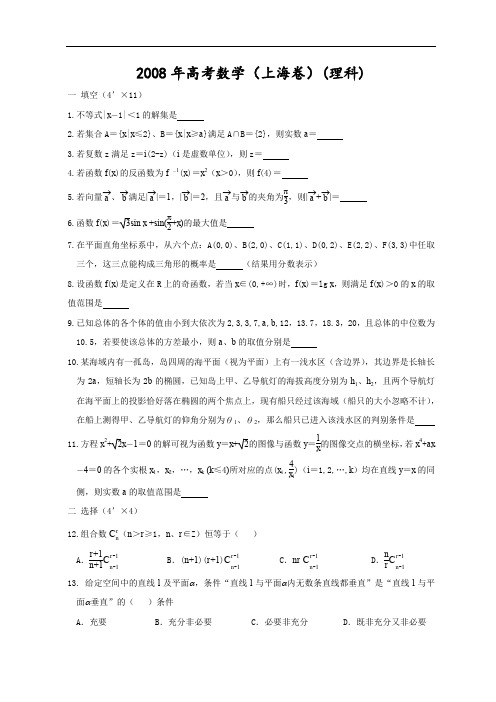 2008年高考数学（上海卷）(理科)
一 填空（4’×11）
1.不等式|x−1|＜1的解集是
2.若集合A＝{x|x≤2}、B＝{x|x≥a}满足A∩B＝{2}，则实数a＝
3.若复数z满足z＝i(2-z)（i是虚数单位），则z＝
4.若函数f(x)的反函数为f ⁻¹(x)＝x²（x＞0），则f(4)＝
5.若向量→a、→b满足|→a|＝1，|→b|＝2，且→a与→b的夹角为π/3，则|→a+→b|＝
6.函数f(x)＝√3sin x +sin(π/2+x)的最大值是
7.在平面直角坐标系中，从六个点：A(0,0)、B(2,0)、C(1,1)、D(0,2)、E(2,2)、F(3,3)中任取
三个，这三点能构成三角形的概率是 （结果用分数表示）
8.设函数f(x)是定义在R上的奇函数，若当x∈(0,+∞)时，f(x)＝lg x，则满足f(x)＞0的x的取
值范围是
9.已知总体的各个体的值由小到大依次为2,3,3,7,a,b,12，13.7，18.3，20，且总体的中位数为
10.5，若要使该总体的方差最小，则a、b的取值分别是
10.某海域内有一孤岛，岛四周的海平面（视为平面）上有一浅水区（含边界），其边界是长轴长
为2a，短轴长为2b的椭圆，已知岛上甲、乙导航灯的海拔高度分别为h₁、h₂，且两个导航灯
在海平面上的投影恰好落在椭圆的两个焦点上，现有船只经过该海域（船只的大小忽略不计），
在船上测得甲、乙导航灯的仰角分别为θ₁、θ₂，那么船只已进入该浅水区的判别条件是
11.方程x²+√2x−1＝0的解可视为函数y＝x+√2的图像与函数y＝1/x的图像交点的横坐标，若x⁴+ax
−4＝0的各个实根x₁，x₂，…，xₖ (k≤4)所对应的点(xᵢ ,4/xᵢ)（i＝1,2,…,k）均在直线y＝x的同
侧，则实数a的取值范围是
二 选择（4’×4）
12.组合数C_n^r（n＞r≥1，n、r∈Z）恒等于（ ）
A．r+1/n+1 C_{n−1}^{r−1} B．(n+1)(r+1)C_{n−1}^{r−1} C．nr C_{n−1}^{r−1} D．n/r C_{n−1}^{r−1}
13. 给定空间中的直线l及平面α，条件“直线l与平面α内无数条直线都垂直”是“直线l与平
面α垂直”的（ ）条件
A．充要 B．充分非必要 C．必要非充分 D．既非充分又非必要